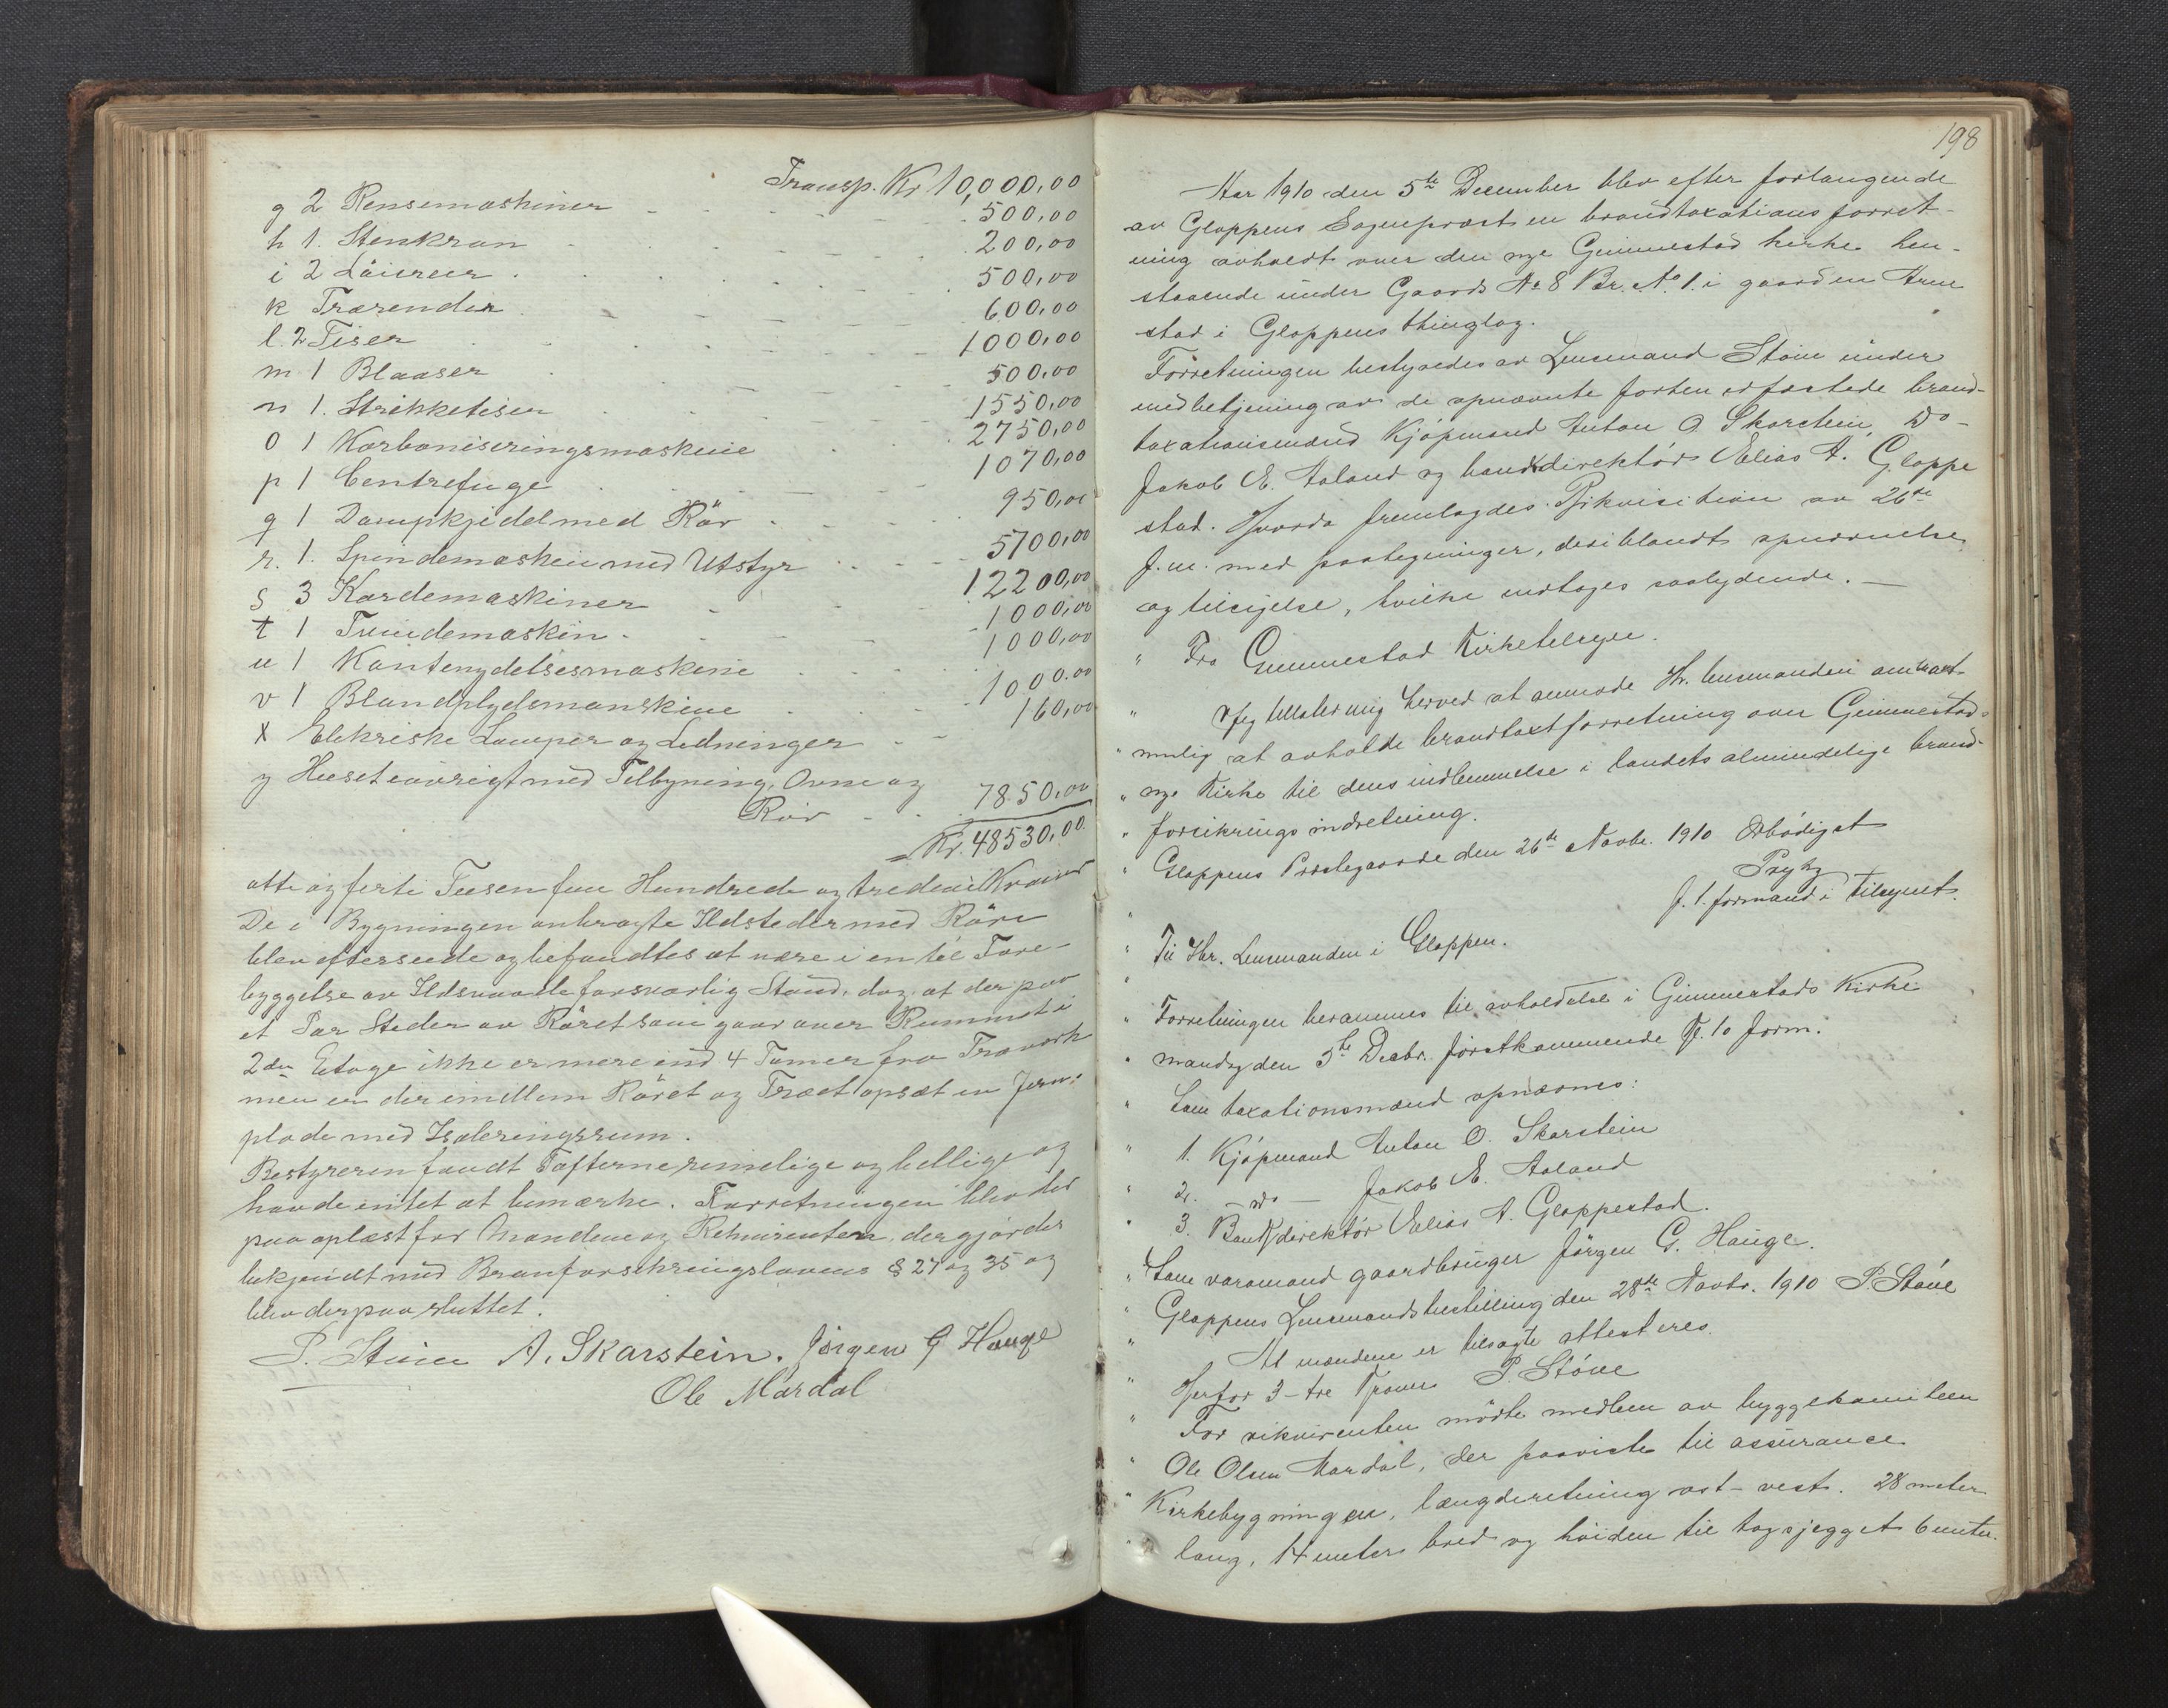 Transp. Kr 10,000,00
g 2 Rensemaskiner 500,00
h 1. Stenkran 200,00
i 2 Löiereier 500,00
k Trærender 600,00
l. 2 Tiser 1000,00
m 1 Blaaser 500,00
n 1. Strikketiser 1550,00
o 1 Karboniseringsmaskine 2750,00
p 1 Centrefuge 1070,00
q 1 Dampkjedel med Rör 950,00
r. 1. Spindemaskin med Utstyr 5700,00
s 3 Kardemaskiner 12200,00
t 1 Tvindemaskin 1000,00
u 1 1000,00
v 1 1000.00
x Elektriske Lamper og Ledninger 160,00
y Huset iövrigt med Tilbygning, Ovne og
Rör 7850,00
= Kr. 48530,00
otte og firti Tusen fem Hundrede og tredivi Kroner
De i Bygningen anbragte Ildsteder med Röre
blev efterseede og befandtes at være i en til Fore-
byggelse av Ildsvaade forsvarlig Stand, dog at der paa
et Par Steder av Röret som gaar over Rummet i
2den Etage ikke er mere end 4 Tomer fra Træverk
men er der imellem Röret og Træet opsæt en Jern-
plade med Isoleringsrum.
Bestyreren fandt Tafterne rimelige og billige og
havde entet at bemærke. Forretningen blev der
paa oplæst for Mændene og Rekvirenten, der gjordes
bekjendt med Branforsikringslovens § 27 og 35 og
blev derpaa sluttet.
P. Stöve A. Skarstein. Jörgen G Hauge
Ole Mardal
198
Aar 1910 den 5te December blev efter forlangende
av Gloppens Sognepræst en brandtaxationsforret-
ning avholdt over den nye Gimmestad kirke hen-
staaende under Gaards No 8 Br. No. 1. i gaarden Arne
stad i Gloppens thinglag.
Forretningen bestyredes av Lensmand Stöve under
medbetjening av de opnævnte forhen edfæstede brand-
taxationsmænd Kjöpmand Anton O. Skarstein, Do -
Jakob E. Aaland og bankdirektör Elias A. Gloppe
stad. Hvorda fremlagdes Rikvisition av 26de
f.m. med paategninger, deriblandt opnævnelse
og tilsigelse, hvilke indtages saalydende. —
" Fra Gimmestad Kirketilsyn.
" Jeg tillater mig herved at anmode Hr. lensmanden om snart-
" mulig at avholde brandtaxtforretning over Gimmestads
" nye Kirke til dens indlemmelse i landets almindelige brand-
" forsikringsindretning.
" Gloppens Prestegaarde den 26de Novbr. 1910 Ærbödigst
f. t. formand i tilsynet.
" Til Hr. Lensmanden i Gloppen.
" Forretningen berammes til avholdelse i Gimmestads Kirke
" mandag den 5te Decbr. förstkommende Kl. 10 form.
" Som taxationsmænd opnævnes:
" 1. Kjöpmand Anton O. Skarstein
" 2. - do - Jakob E. Aaland
" 3. Bankdirektör Elias A. Gloppestad.
" Som varamand gaardbruger Jörgen G. Hauge.
" Gloppens Lensmandsbestilling den 28de Novbr. 1910 P. Stöve
" At mændene er tilsagte attesteres.
" Herfor 3 - tre Kroner P. Stöve
" For rikvirenten mödte medlem av byggekomiteen
" Ole Olsen Mardal, der paaviste til assurance
" Kirkebygningen, længderetning öst - vest. 28 meter
" lang, 14 meter bred og höiden til tagsjegget 6 meter.